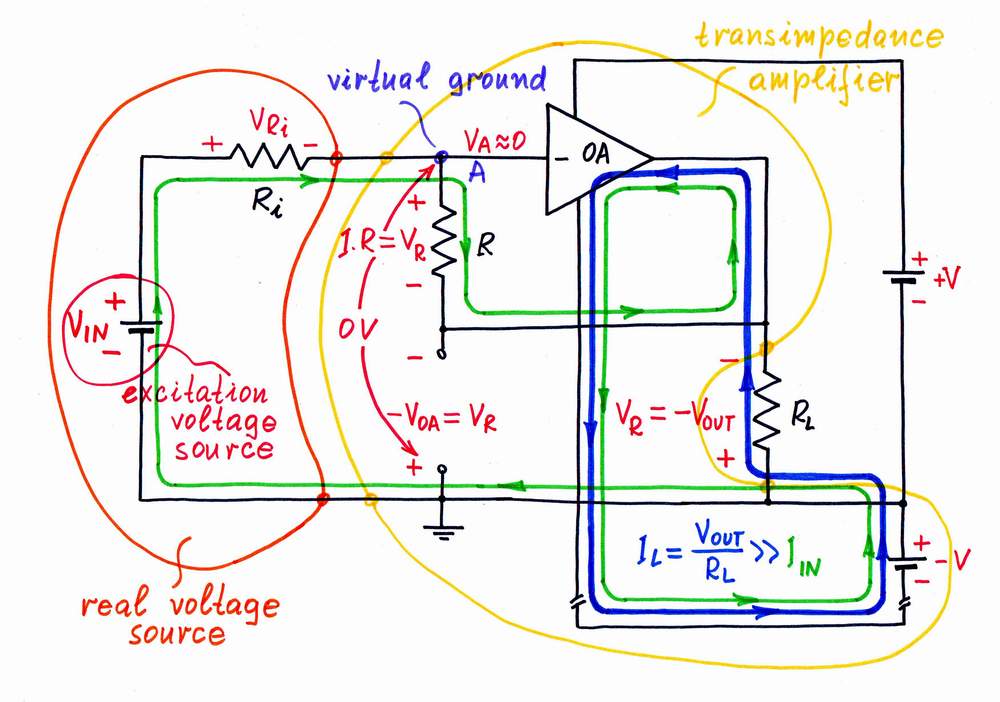 transimpedance
amplifier
virtual ground
VRi
+ -
VA≈0
- OA
A
Ri
+
I.R=VR
R
-
+
+V
-
0V
VIN
+
-
-
-
excitation
voltage
source
-VOA = VR
+
VR = -VOUT
+
RL
IL = VOUT/RL >> IIN
+
- V
-
real voltage
source